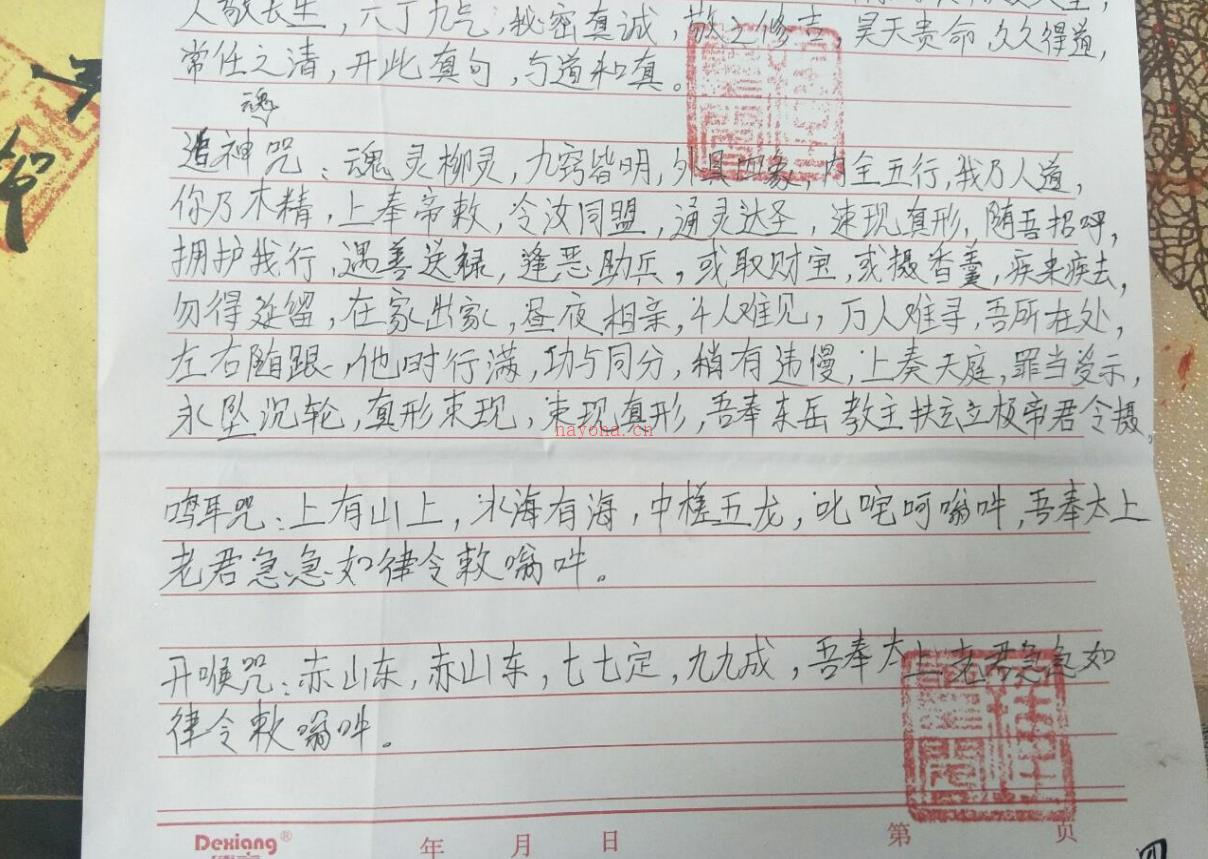 人敬长生，六丁九气，秘密真诚，敬之修吉，昊天贵命，久久得道，
常任之清，开此真句，与道和真。
魂
追神咒：魂灵柳灵，九窍皆明，外具四象，内全五行，我乃人道，
你乃木精，上奉帝敕，令汝同盟，通灵达圣，速现真形，随吾招呼，
拥护我行，遇善送禄，逢恶助兵，或取财宝，或摄香羹，疾来疾去，
勿得延留，在家出家，昼夜相亲，千人难见，万人难寻，吾所在处，
左右随跟，他时行满，功与同分，稍有违慢，上奏天庭，罪当受示，
永坠沉轮，真形束现，束现真形，吾奉东岳教主扶玄立极帝君令摄。
nayona.cn
鸣耳咒：上有山上，水海有海，中槎五龙，叱咤呵嗡吽，吾奉太上
老君急急如律令敕嗡吽。
开喉咒：赤山东，赤山东，七七定，九九成，吾奉太上老君急急如
律令敕嗡吽。
Dexiang®
年 月 日 第 页
四